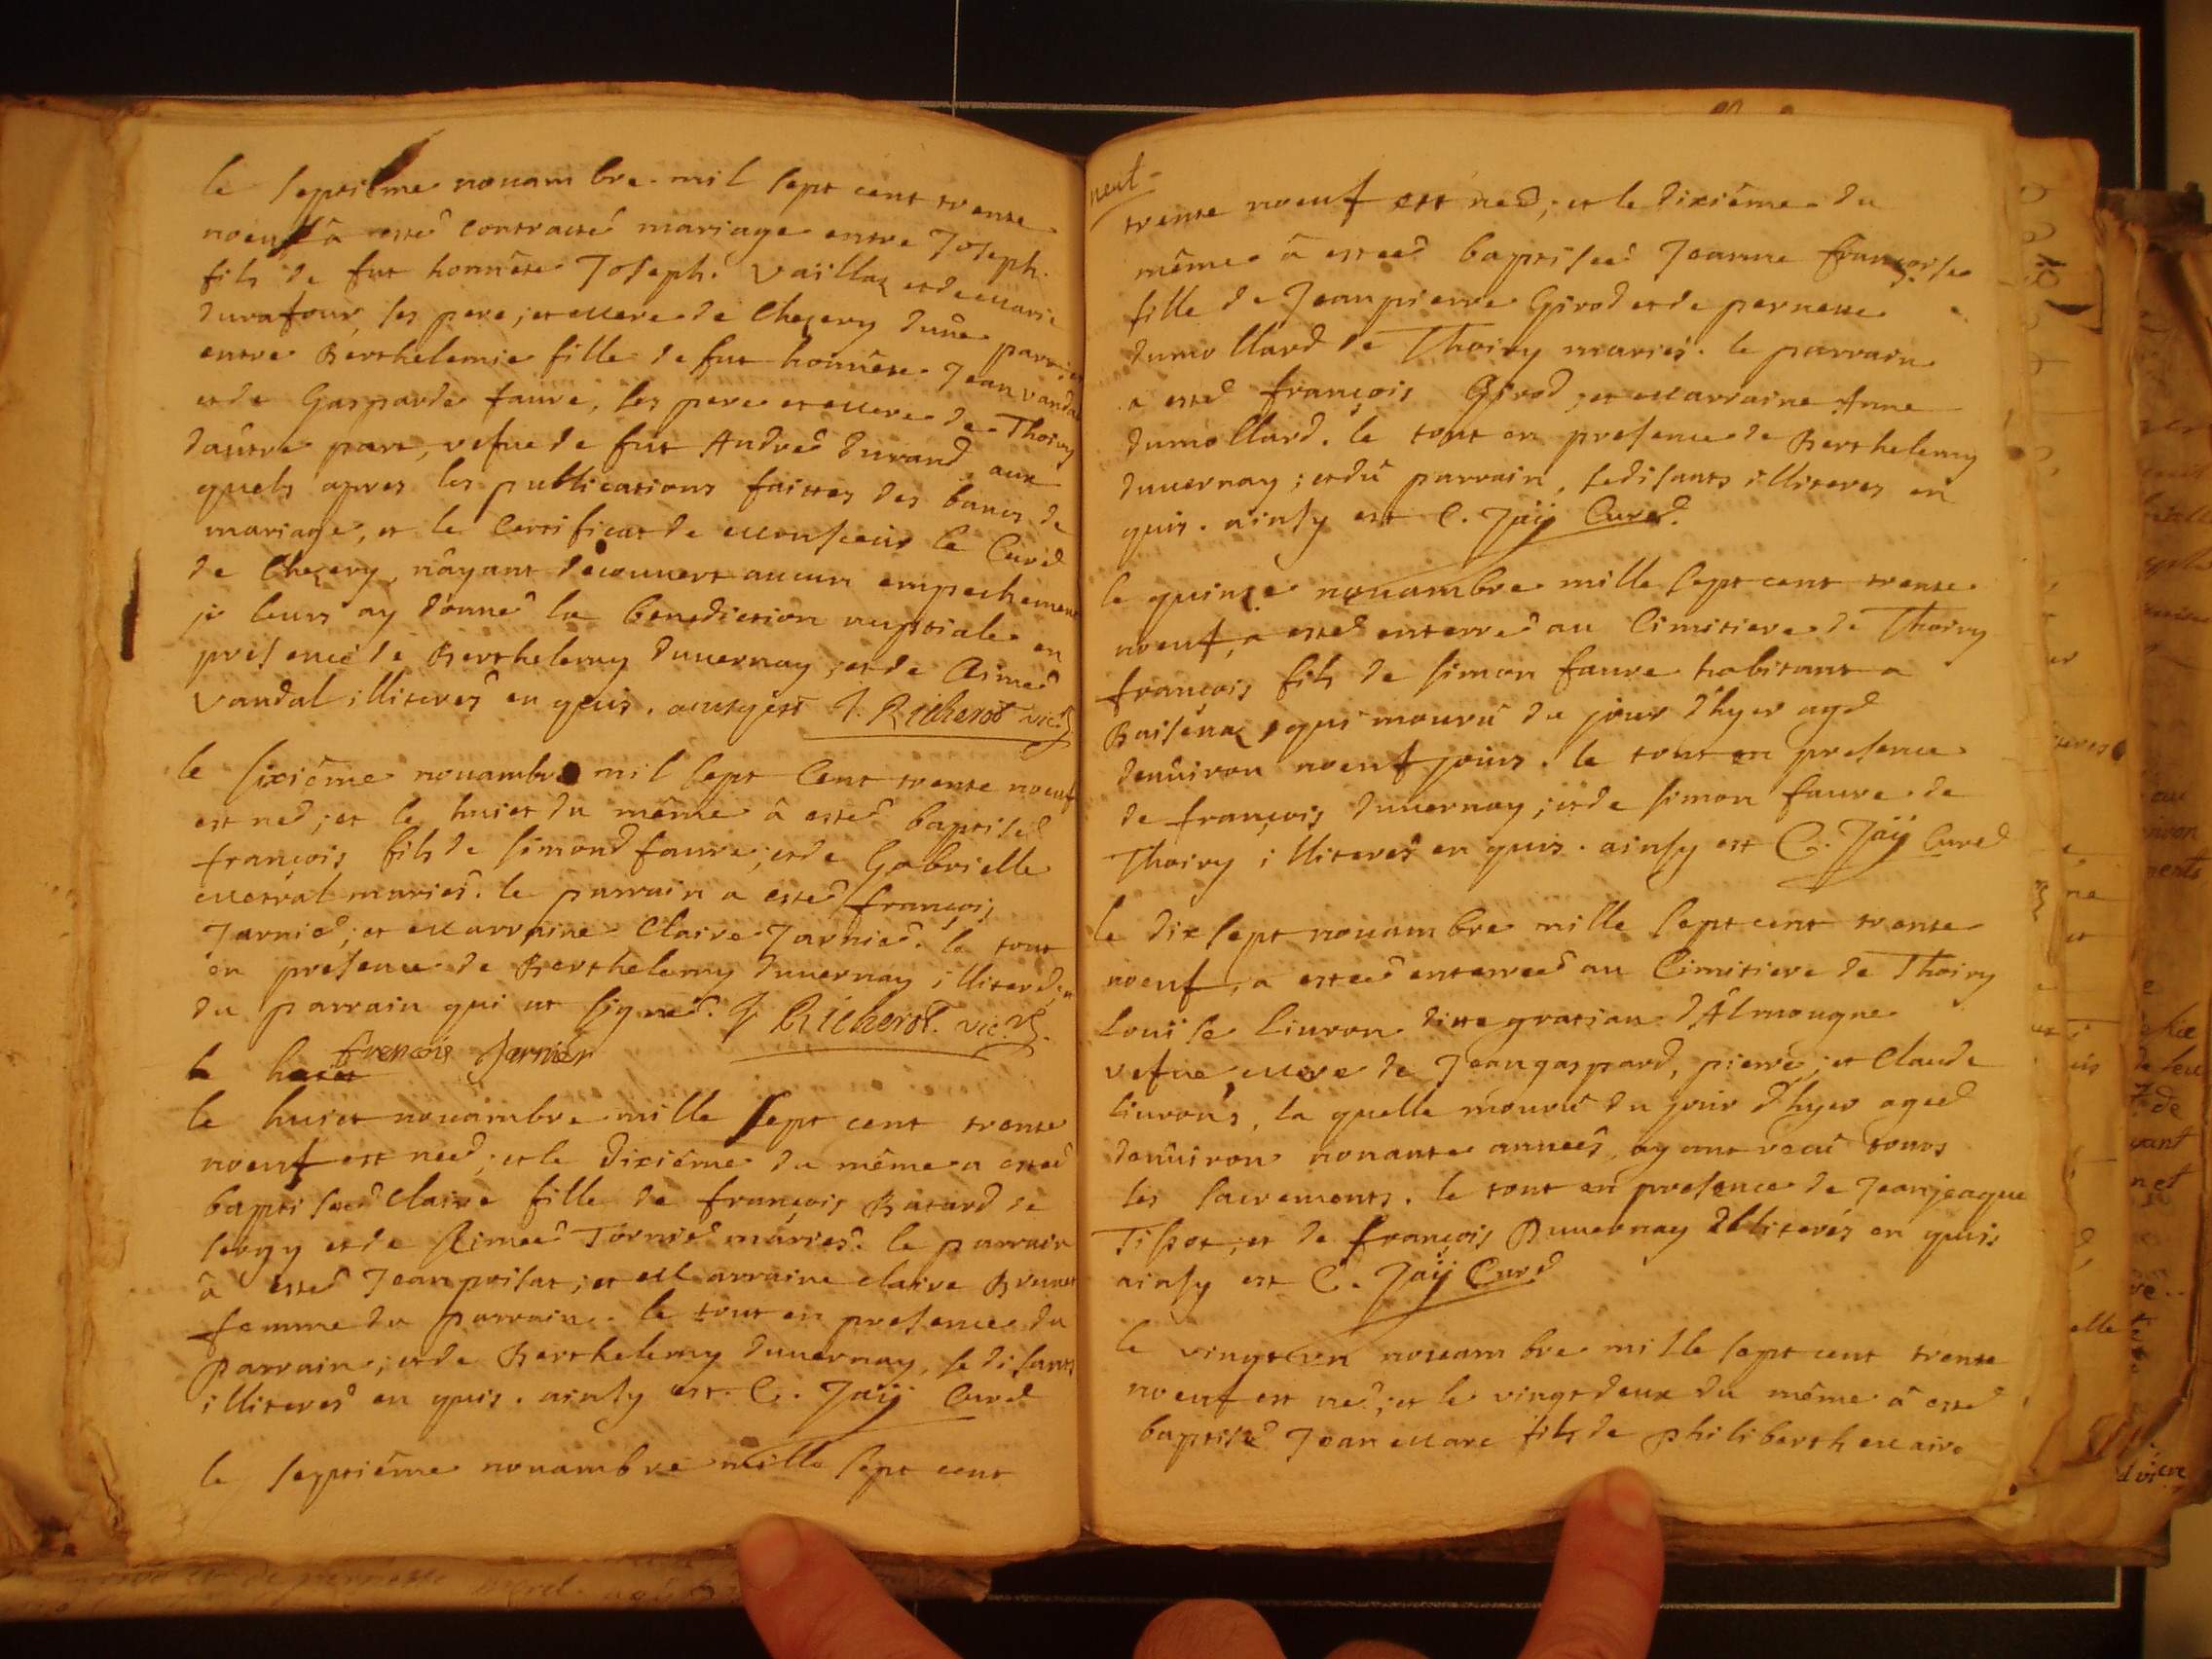 le septiême nouambre mil sept cent trente
noeuf â esté contracté mariage entre Joseph
fils de fut honnête Joseph Vaillaz et de marie
durafour, ses pere, et mere de Chezery dune part, et
entre Berthelemie fille de fut honnête Jean vandal
et de Gasparde faure, ses pere et mere de Thoiry
dautre part, vefue de fut André durand, aux
quels apres les publications faittes des bancs de
mariage, et le Certificat de monsieur le Curé
de Chezery, nâyant découuert aucun empechement
je leurs ay donné la benediction nuptiale en
presence de Berthelemy duuernay, et de Aimé
Vandal illiterés en quis. ainsy est J. Richerot vic.
le sixiême nouambre mil sept Cent trente noeuf
est né, et le huict du même â esté baptisé
françois fils de simond faure, et de Gabrielle
mariés. le parrain a esté françois
Jarnié, et marraine Claire Jarnié. le tout
en presence de Berthelemy duuernay illiteré, et
du parrain qui at signé. J. Richerot. vic.
francois Jarnier
le huict
le huict nouambre mille sept cent trente
noeuf est neé, et le dixiême du même a esteé
baptiseé Claire fille de françois Batard de
sergy et de Aimeé Tornié mariés. le parrain
â esté Jean prisat, et marraine claire Brunet
femme du parrain. le tout en presence du
parrain, et de Berthelemy duuernay, se disants
illiterés en quis. ainsy est. C. Jaÿ Curé
le septiême nouambre mille sept cent
neuf
trente noeuf est neé, et le dixiême du
même â esteé baptiseé Jeanne françoise
fille de Jeanpierre Girod et de pernette
dumollard de Thoiry mariés. le parrain
a esté françois Girod, et marraine Anne
dumollard. le tout en presence de Berthelemy
duuernay, et dû parrain, se disants illiteres en
quis. ainsy est C. Jaÿ Curé.
le quinze nouambre mille sept cent trente
noeuf, a esté enterré au Cimitiere de Thoiry
françois fils de simon faure habitant a
Baisenaz, qui mourû du jour d'hyer agé
denûiron noeuf jours. le tout en presence
de françois duuernay, et de simon faure de
Thoiry illiterés en quis. ainsy est C. Jaÿ Curé
le dix sept nouambre mille sept cent trente
noeuf, a esteé enterreé au Cimitiere de Thoiry
Louise liuron ditte gratian d'Almougne
vefue, mere de Jeangaspard, pierre, et Claude
liurons, la quelle mourû du jour d'hyer ageé
denûiron nonante anneés, ayant recû touts
les sacrements. le tout en presence de Jeanjeaque
Tissot, et de françois Duuernay Illiterés en quis
ainsy est C. Jaÿ Curé
le vingt vn nouambre mille sept cent trente
noeuf est né, et le vingt deux du même â esté
baptisé Jean marc fils de philiberth maire